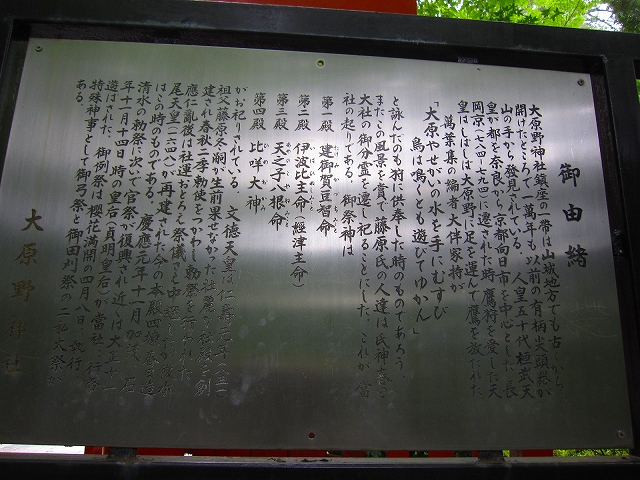 御由緒
大原野神社鎮座の一帯は山城地方でも古くから
開けたところで一萬年も以前の有柄尖頭器が
山の手から發見されている 人皇五十代桓武天
皇が都を奈良から京都向日市を中心とした長
岡京(七八四-七九四)に遷された時 鷹狩を愛した天
皇はしばしば大原野に足を運んで鷹を放たれた
萬葉集の編者大伴家持が
「大原やせがいの水を手にむすび
鳥は鳴くとも遊びてゆかん」
と詠んだのも狩に供奉した時のものであろう
またこの風景を賞で藤原氏の人達は氏神春日
大社の御分霊を遷し祀ることにした これが當
社の起りである 御祭神は
第一殿 建御賀豆智命
第二殿 伊波比主命(經津主命)
第三殿 天之子八根命
第四殿 比咩大神
がお祀りされている 文徳天皇は仁壽元年(八五一)
祖父藤原冬嗣が生前果せなかった壮麗な社殿を創
建され春秋二季勅使をつかわし勅祭を行われた
應仁亂後は社運おとろえ祭儀も中絶
尾天皇(一六四八)が再建された今の本殿四棟
はこの時のものである 慶應元年十一月
清水の勅祭に次いで官祭が復興され近くは大正十一
年十一月十四日時の皇后(貞明皇后)が當社へ行啓
遊ばされた 御例祭は櫻花満開の四月八日 執行
特殊神事として御弓祭と御田刈祭の二私大祭が
ある
大原野神社